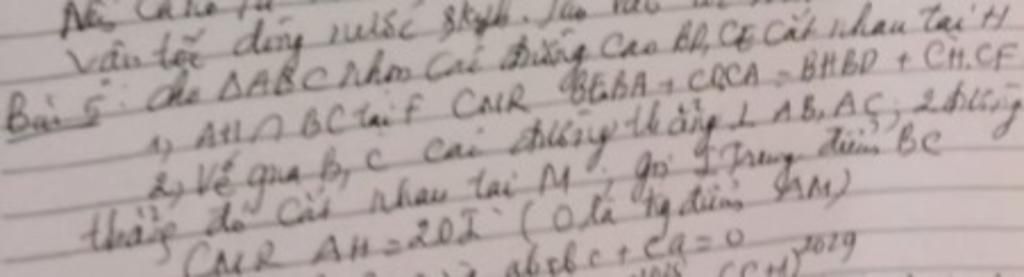 vận tốc dòng nước 3km/h.
Bài 5: Cho ΔABC nhọn Các đường cao BD, CE Cắt nhau tại H
1, AH ∩ BC tại F CMR BE.BA + CD.CA = BH.BD + CH.CE
2, Vẽ qua B, C các đường thẳng ⊥ AB, AC, 2 đường
thẳng đó cắt nhau tại M, gọi I Trung điểm BC
CMR AH = 2OI (O là tg điểm AM)
ab+bc+ca=0
2019